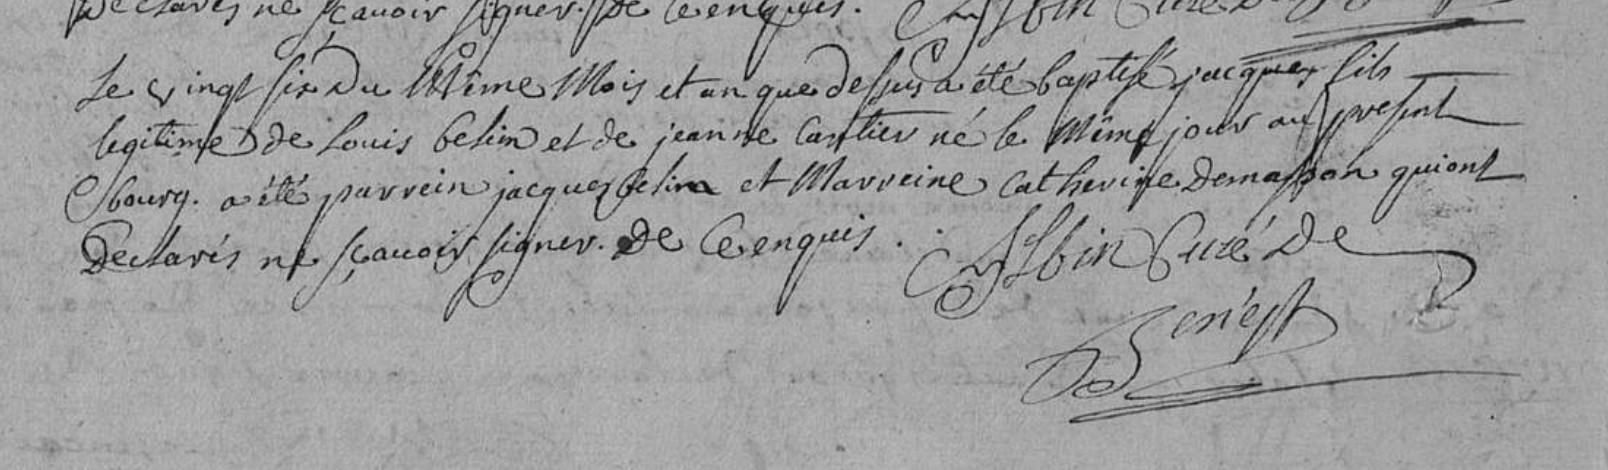 Declarés ne sçavoir signer. De Ce enquis. Curé De
Le vingt six Du Même Mois et an que dessus a été baptissé jacques fils
legitime de Louis belin et de jeanne Cartier né le Même jour au present
bourg. a été parrein jacques belin et Marreine Catherine Demasson qui ont
Declarés ne sçavoir signer. De Ce enquis. Curé De